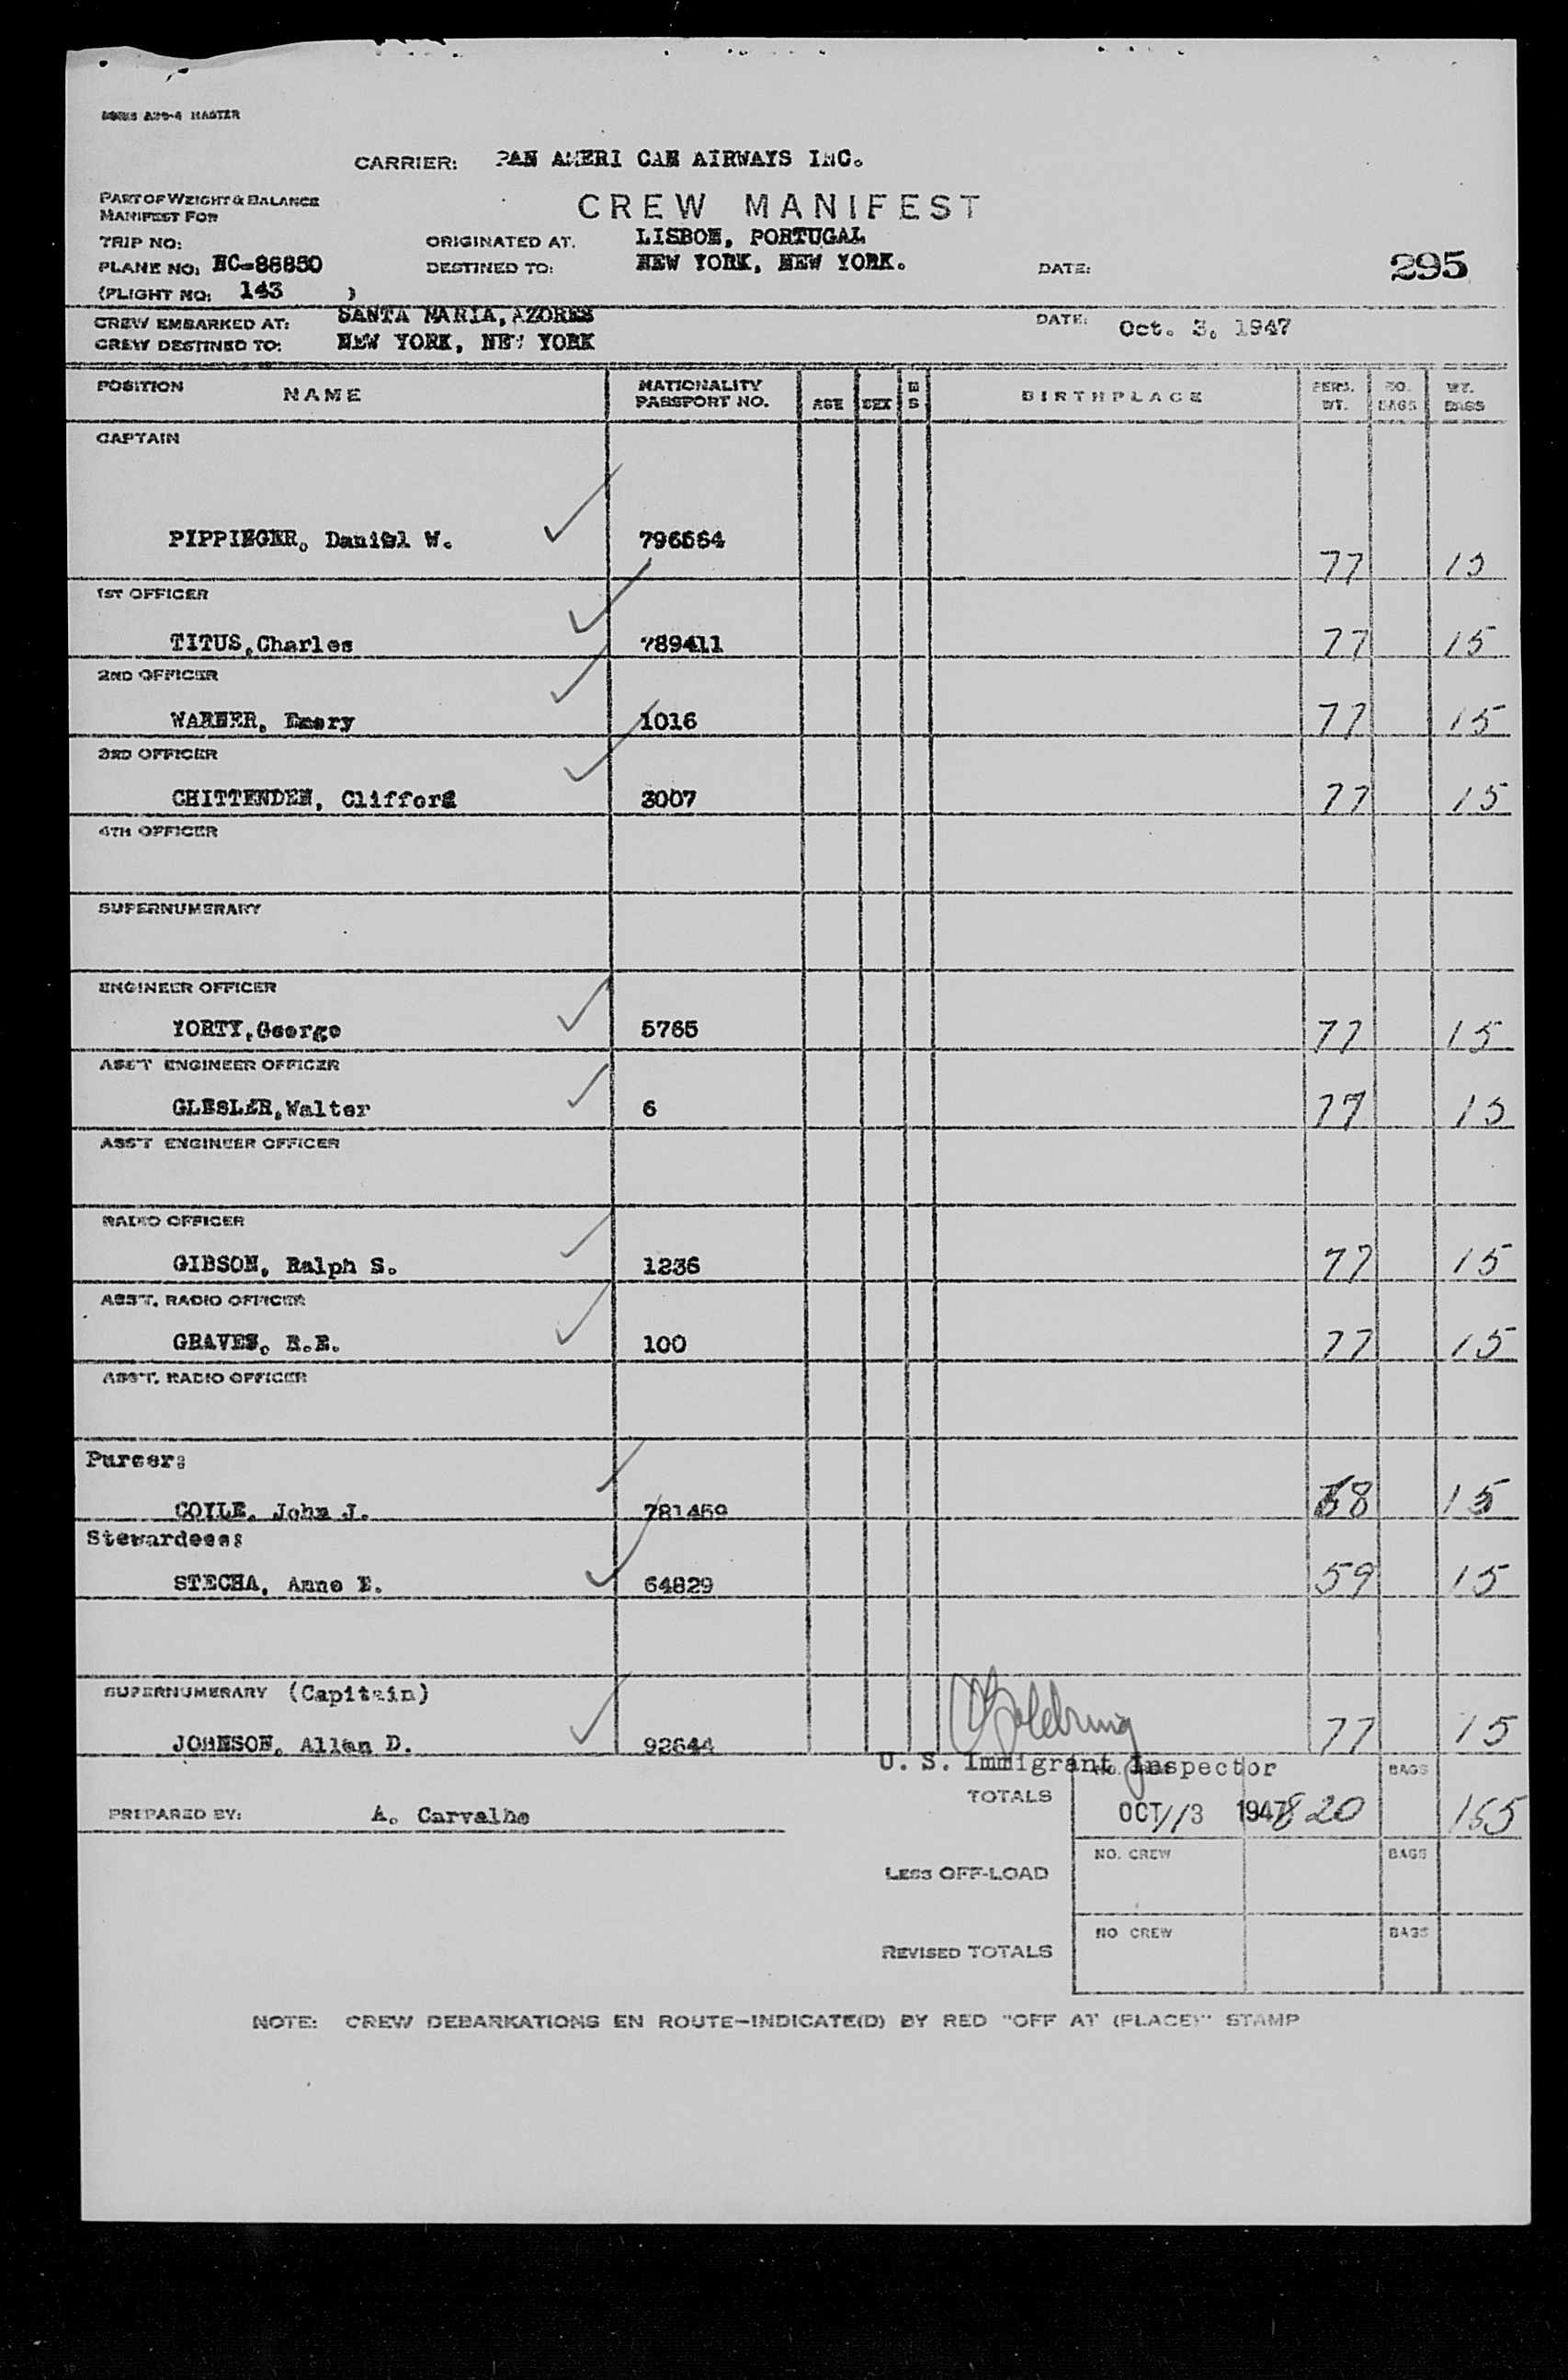 CARRIER: PAN AMERI CAN AIRWAYS INC.
PART OF WEIGHT & BALANCE
MANIFEST FOR
CREW MANIFEST
TRIP NO:
ORIGINATED AT. LISBON, PORTUGAL
PLANE NO: NC-88850
DESTINED TO: NEW YORK, NEW YORK.
DATE:
295
(FLIGHT NO: 143 )
CREW EMBARKED AT: SANTA MARIA, AZORES
DATE: Oct. 3, 1947
CREW DESTINED TO: NEW YORK, NEW YORK
POSITION NAME NATIONALITY PASSPORT NO. AGE SEX M S BIRTHPLACE PERS. WT. NO. BAGS WT. BAGS
CAPTAIN
PIPPINGER, Daniel W. 796564 77 15
1ST OFFICER
TITUS,Charles 789411 77 15
2ND OFFICER
WARNER, Emery 1016 77 15
3RD OFFICER
CHITTENDEN, Clifford 3007 77 15
4TH OFFICER
SUPERNUMERARY
ENGINEER OFFICER
YORTY,George 5765 77 15
ASS'T ENGINEER OFFICER
GLESLER,Walter 6 77 15
ASS'T ENGINEER OFFICER
RADIO OFFICER
GIBSON, Ralph S. 1236 77 15
ASS'T. RADIO OFFICER
GRAVES, E.E. 100 77 15
ASS'T. RADIO OFFICER
Purser:
COYLE, John J. 781459 68 15
Stewardess:
STECHA, Anne E. 64829 59 15
SUPERNUMERARY (Capitain)
JOHNSON, Allan D. 92644 77 15
U. S. Immigrant Inspector
BAGS
TOTALS OCT 3 1947 11 820 165
PREPARED BY: A. Carvalho
NO. CREW BAGS
LESS OFF-LOAD
NO CREW BAGS
REVISED TOTALS
NOTE: CREW DEBARKATIONS EN ROUTE-INDICATE(D) BY RED "OFF AT (PLACE)" STAMP